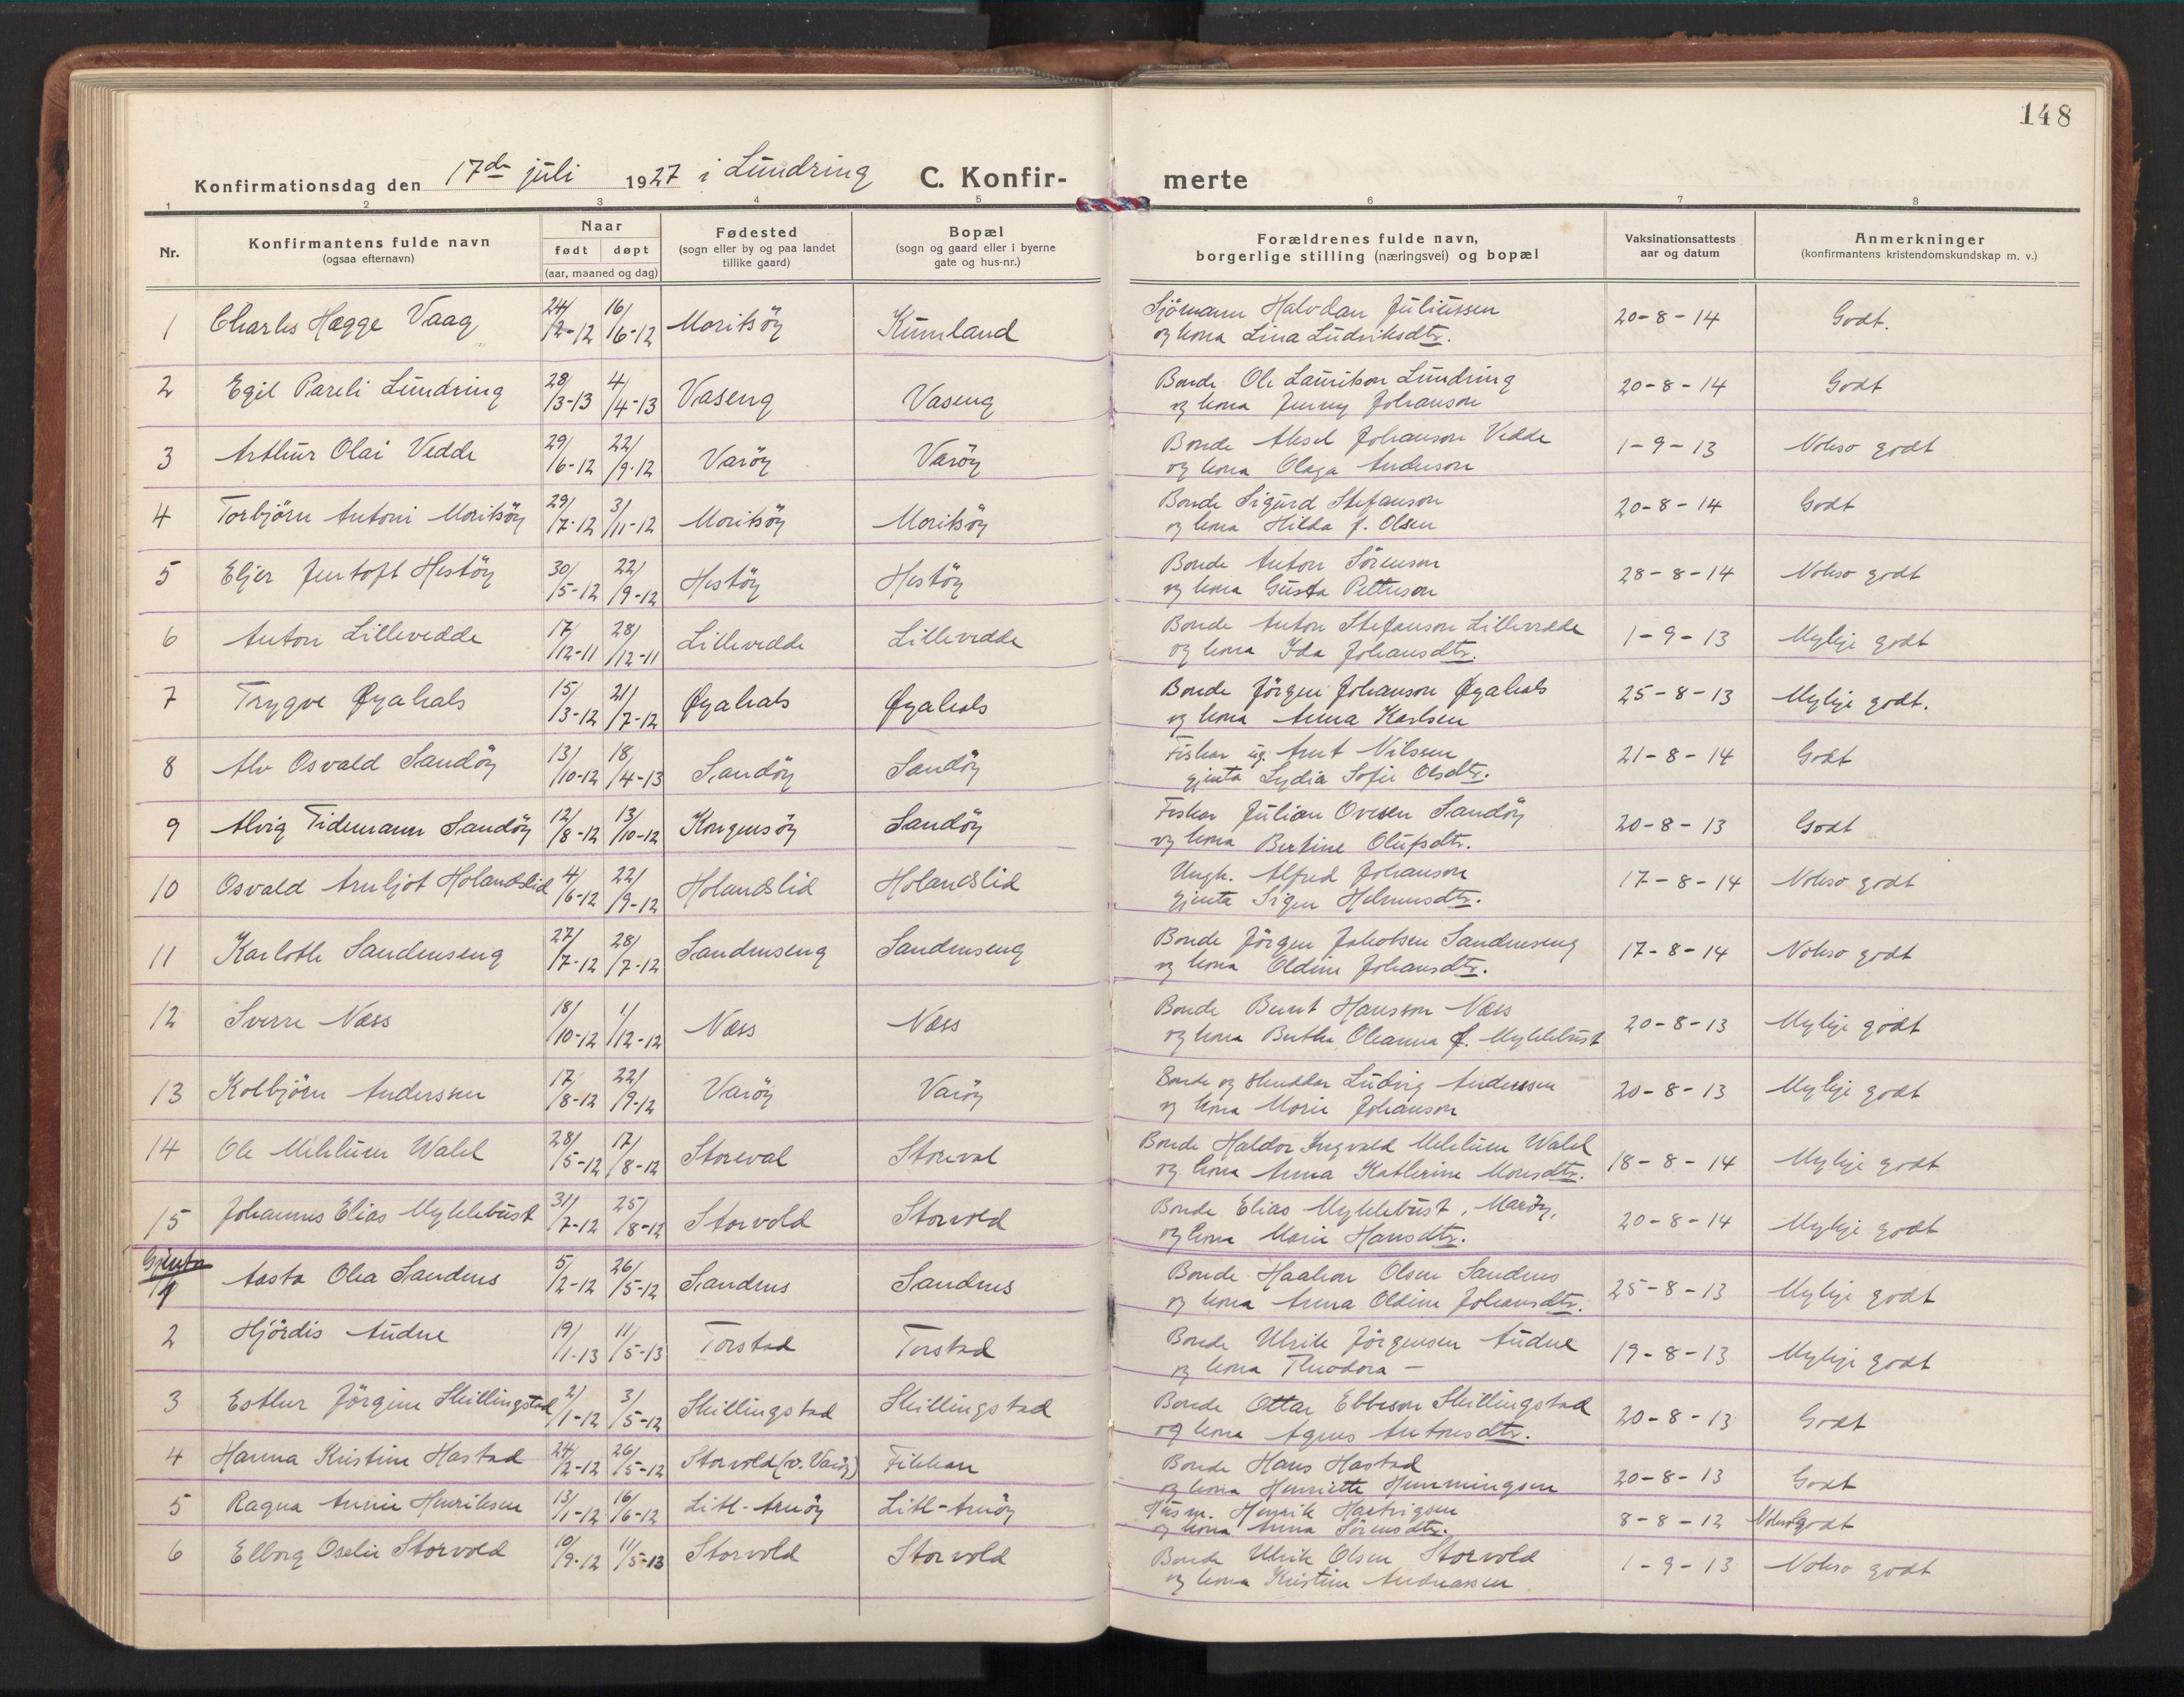 148
Konfirmationsdag den 17de juli 1927 i Lundring C. Konfir- merte
1 2 3 4 5 6 7 8
Nr. Konfirmantens fulde navn (ogsaa efternavn) Naar født døpt (aar, maaned og dag) Fødested (sogn eller by og paa landet tillike gaard) Bopæl (sogn og gaard eller i byerne gate og hus-nr.) Forældrenes fulde navn, borgerlige stilling (næringsvei) og bopæl Vaksinationsattests aar og datum Anmerkninger (konfirmantens kristendomskundskap m. v.)
1 Charles Hegge Vaag 24/2-12 16/6-12 Moritsöy Kumland Sjömann Halvdan Juliussen 20-8-14 Godt.
og kona Lina Ludviksdtr.
2 Egil Pareli Lundring 28/3-13 4/4-13 Vaseng Vaseng Bonde Ole Lauritson Lundring 20-8-14 Godt
og kona Jenny Johanson
3 Arthur Olai Vedde 29/6-12 22/9-12 Varöy Varöy Bonde Aksel Johanson Vedde 1-9-13 Nokso godt
og kona Olaga Anderson
4 Torbjörn Antoni Moritsöy 29/7-12 3/11-12 Moritsöy Moritsöy Bonde Sigurd Stefanson 20-8-14 Godt
og kona Hilda f. Olsen
5 Eljer Jentoft Hestöy 30/5-12 22/9-12 Hestöy Hestöy Bonde Anton Sörenson 28-8-14 Nokso godt
og kona Gusta Petterson
6 Anton Lillevedde 17/12-11 28/12-11 Lillevedde Lillevedde Bonde Anton Stefanson Lillevedde 1-9-13 Mykje godt
og kona Ida Johansdtr.
7 Trygve Øyahals 15/3-12 21/7-12 Øyahals Øyahals Bonde Jörgen Johanson Øyahals 25-8-13 Mykje godt.
og kona Anna Karlsen
8 Alv Osvald Sandöy 13/10-12 18/4-13 Sandöy Sandöy Fiskar ug. Arnt Nilssen 21-8-14 Godt
gjenta Lydia Sofie Olsdtr.
9 Alvig Tidemann Sandöy 12/8-12 13/10-12 Kongensöy Sandöy Fiskar Julian Ovesen Sandöy 20-8-13 Godt
og kona Bertine Olufsdtr.
10 Osvald Arnljot Holandslid 4/6-12 22/9-12 Holandslid Holandslid Ungk. Alfred Johanson 17-8-14 Nokso godt
gjenta Signe Helmersdtr.
11 Karloth Sandenseng 27/7-12 28/7-12 Sandenseng Sandenseng Bonde Jörgen Jakobsen Sandenseng 17-8-14 Nokso godt
og kona Oldine Johansdtr.
12 Sverre Næss 18/10-12 1/12-12 Næss Næss Bonde Bernt Hansson Næss 20-8-13 Mykje godt
og kona Berthe Oleanna f. Myklebust
13 Kolbjörn Anderssen 17/8-12 22/9-12 Varöy Varöy Bonde og Ludvig Anderssen 20-8-13 Mykje godt
og kona Marie Johanson
14 Ole Mehlum Walel 28/5-12 17/8-12 Storeval Storval Bonde Haldor Ingvald Mehlum Walel 18-8-14 Mykje godt
og kona Anna Katherine Monsdtr.
15 Johannes Elias Myklebust 31/7-12 25/8-12 Storvold Storvold Bonde Elias Myklebust, Maröy, 20-8-14 Mykje godt
og kona Marie Hansdtr.
Gjenta
1 Aasta Olea Sandnes 5/2-12 26/5-12 Sandnes Sandnes Bonde Haakon Olsen Sandnes 25-8-13 Mykje godt
og kona Anna Oldine Johansdtr.
2 Hjördis Audne 19/1-13 11/5-13 Torstad Torstad Bonde Ulrik Jörgensen Audne 19-8-13 Mykje godt
og kona Theodora -
3 Esther Jörgine Skillingstad 2/1-12 3/5-12 Skillingstad Skillingstad Bonde Ottar Ebbeson Skillingstad 20-8-13 Godt
og kona Agnes Antonsdtr.
4 Hanna Kristine Hastad 24/2-12 26/5-12 Storvold (v. Varöy) Fikkan Bonde Hans Hastad 20-8-13 Godt
og kona Henriette Hemmingsen
5 Ragna Annie Henriksen 13/1-12 16/6-12 Litl-Arnöy Litl-Arnöy Husm. Henrik Hartvigsen 8-8-12 Nokso godt
og kona Anna Sörensdtr.
6 Elborg Oselie Storvold 10/9-12 11/5-13 Storvold Storvold Bonde Ulrik Olsen Storvold 1-9-13 Nokso godt
og kona Kristine Andreassen